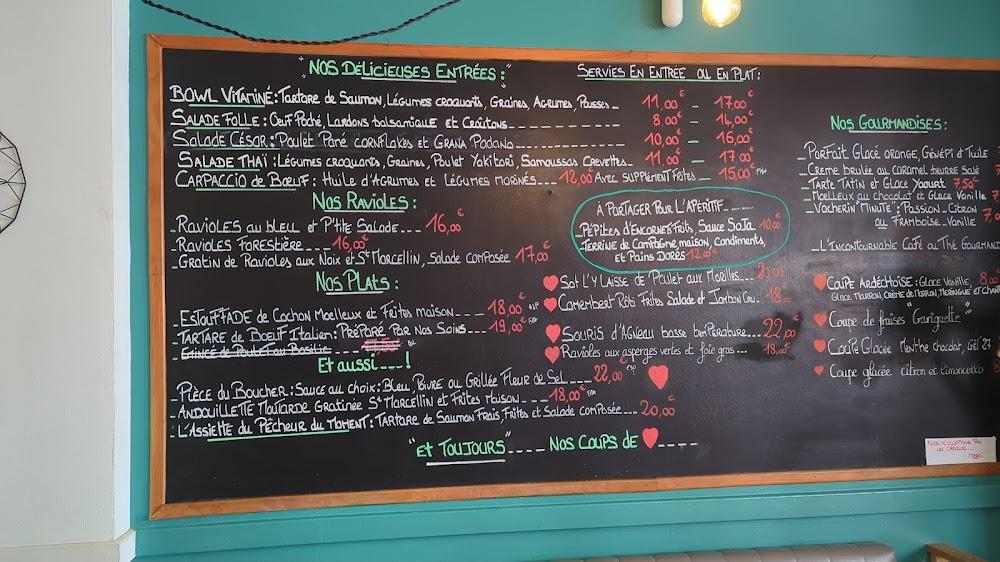 "Nos Délicieuses Entrées:"
Servies En Entrée ou En Plat:
Bowl Vitaminé: Tartare de Saumon, Légumes croquants, Graines, Agrumes, Pousses _ 11,00€ - 17,00€
Salade Folle: Oeuf Poché, Lardons balsamique et Croûtons _ _ _ 8,00€ - 14,00€
Salade César: Poulet Pané cornflakes et Grana Padano _ _ _ 10,00€ - 16,00€
Salade Thaï: Légumes croquants, Graines, Poulet Yakitori, Samoussas Crevettes _ _ 11,00€ - 17,00€
Carpaccio de Boeuf: Huile d'Agrumes et Légumes marinés _ _ _ 12,00 Avec supplément Frites _ _ 15,00€
Nos Ravioles:
_Ravioles au bleu et P'tite Salade _ _ _ 16,00€
_Ravioles Forestière _ _ _ 16,00€
_Gratin de Ravioles aux Noix et St Marcellin, Salade composée 17,00€
Nos Plats:
_Estouffade de Cochon Moelleux et Frites maison _ _ _ 18,00€
_Tartare de Boeuf Italien: Préparé Par Nos Soins _ _ _ 19,00€
Et aussi _ _ _ !
_Pièce du Boucher: Sauce au choix: Bleu, Poivre ou Grillée Fleur de Sel _ _ _ 22,00€
_Andouillette Moutarde Gratinée St Marcellin et Frites Maison _ _ _ 18,00€
_L'Assiette du Pêcheur du Moment: Tartare de Saumon Frais, Frites et Salade composée _ _ _ 20,00€
À Partager Pour L'Apéritif _ _ _
_Pépites d'Encornets Frits, Sauce Soja 10,00€
_Terrine de Campagne maison, Condiments,
et Pains Dorés 12,00€
Sot L'y Laisse de Poulet aux Morilles _ _ _ 20,00
Camembert Rôti Frites Salade et Jambon Cru _ 18,00
Souris d'Agneau basse température _ _ _ 22,00€
Ravioles aux asperges vertes et foie gras _ _ _ 18,00€
"Et Toujours" _ _ _ _ Nos Coups de ♥ _ _ _ _
Nos Gourmandises:
_Parfait Glacé orange, Génépi et Tuile
_Crème brulée au caramel beurre salé
_Tarte Tatin et Glace Yaourt 7,50€
_Moelleux au chocolat et Glace Vanille
_Vacherin "Minute": Passion-Citron
ou Framboise-Vanille
_L'Incontournable Café ou Thé Gourmand
Coupe Ardéchoise: Glace Vanille,
Glace Marron, Crème de Marron, Meringue et
Coupe de fraises Gariguette
Coupe Glacée Menthe chocolat, Get 27
Coupe glacée citron et limoncello
Nous n'acceptons pas
les chèques...
Merci